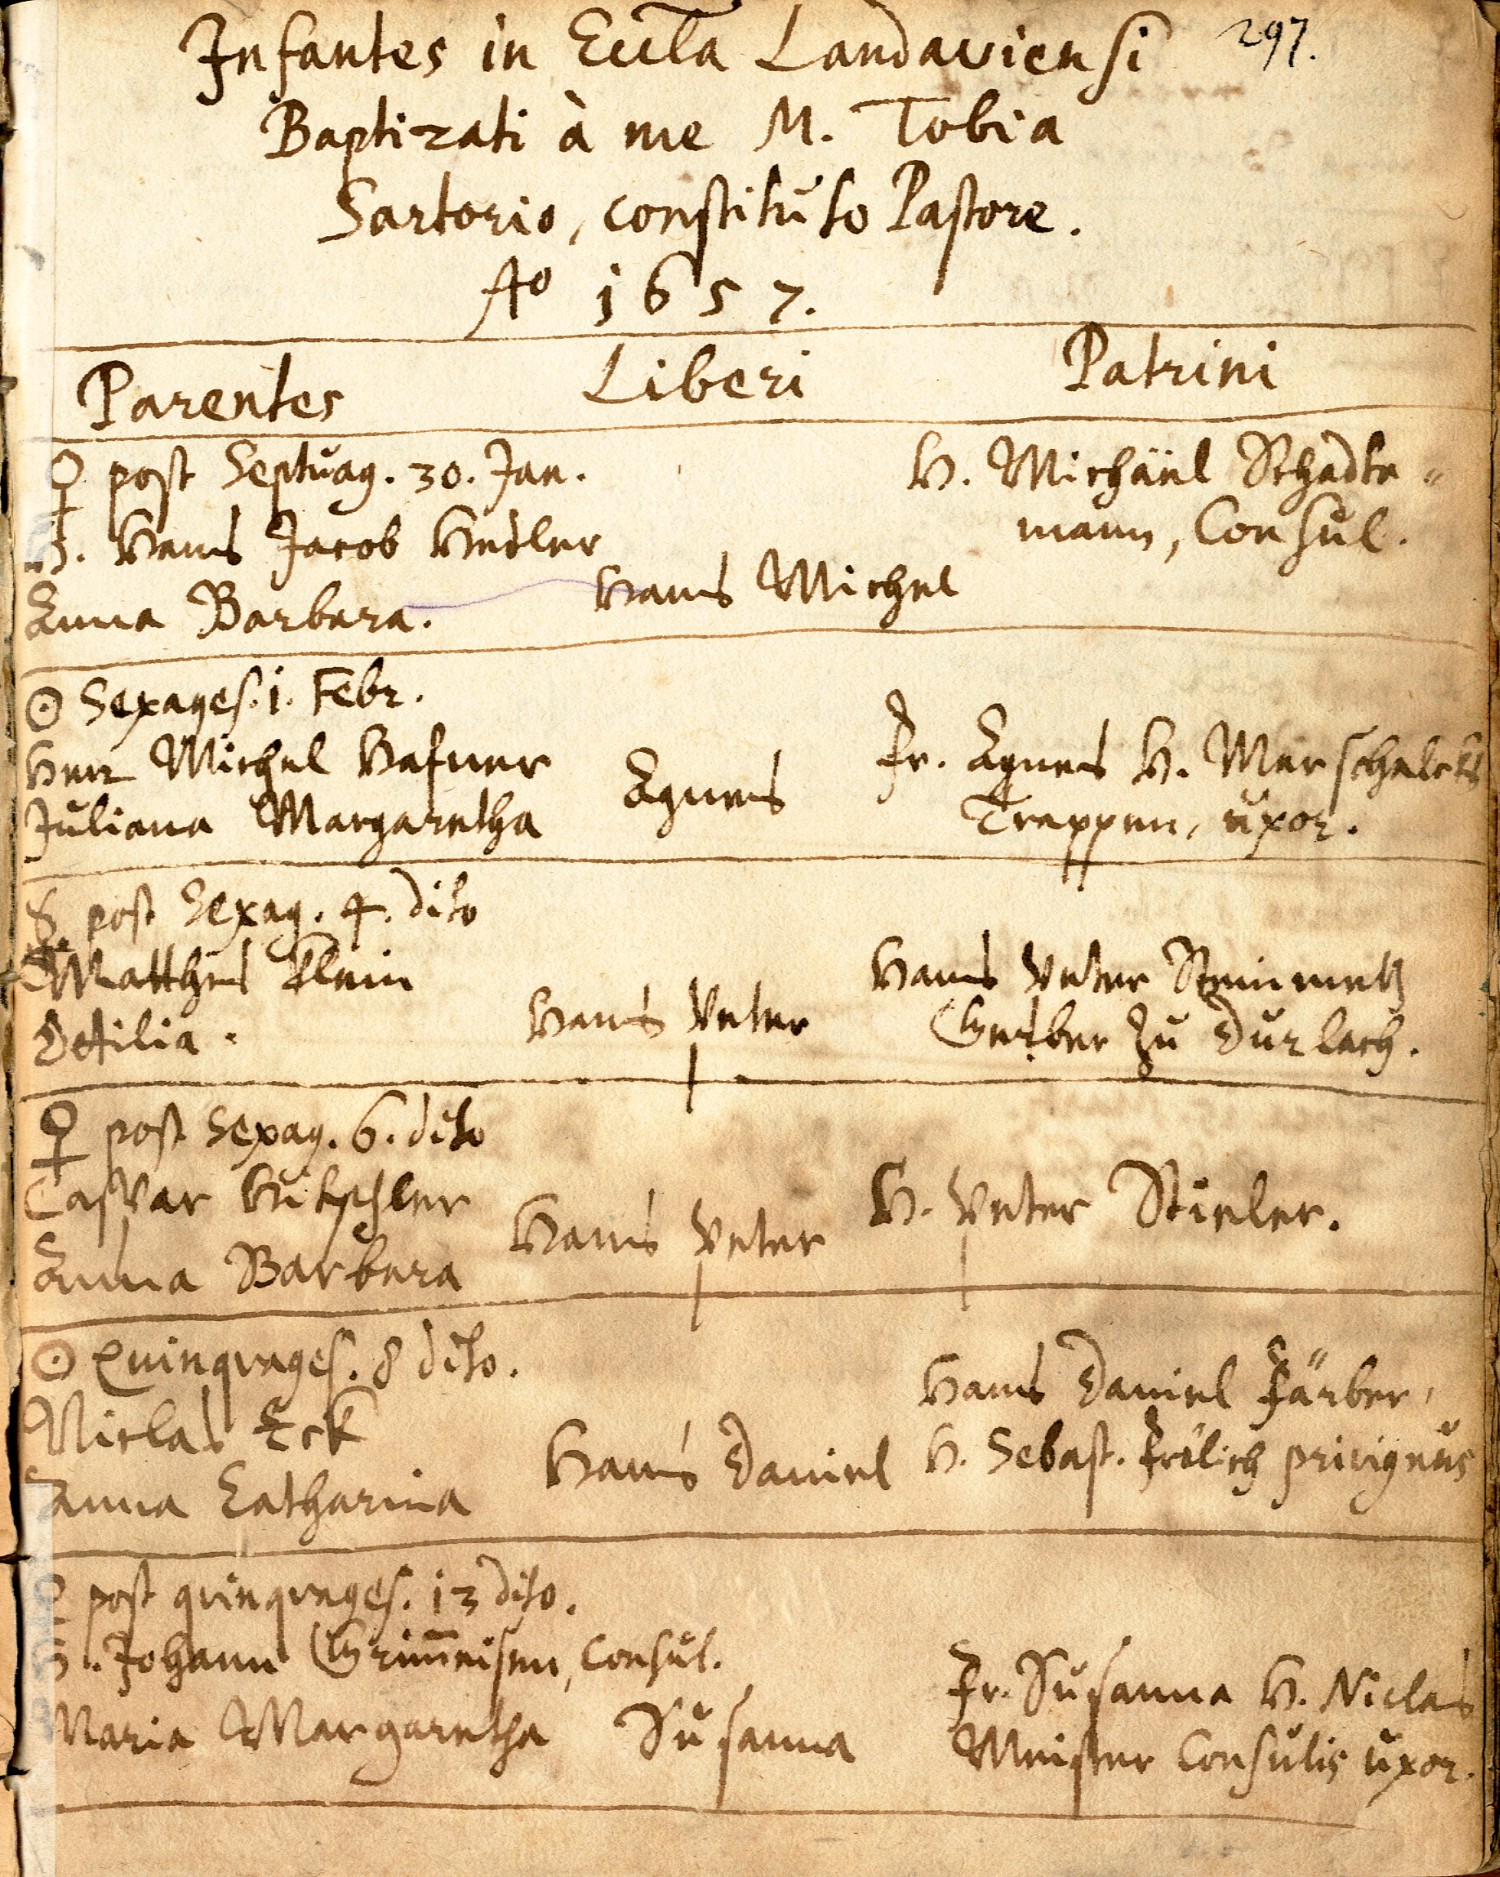 297.
Infantes in Eccła Landaviensi
Baptizati à me M. Tobia
Sartorio, constituto Pastore.
Aº 1657.
Parentes Liberi Patrini
♀ post Septuag. 30. Jan.
H. Hans Jacob Hedler
Anna Barbara.
Hans Michel
H. Michäel Schadte=
mann, Consul.
☉ Sexages. 1. Febr.
Herr Michel Hafner
Juliana Margaretha
Agnes
Fr. Agnes H. Marschalcks
Trappen, uxor.
post Sexag. 4. dito
Matthes Klein
Ottilia.
Hans Peter
Hans Peter Steinmetz
Gerber zu Durlach.
♀ post Sexag. 6. dito
Caspar
Anna Barbara
Hans Peter
H. Peter Stieler.
☉ Quinquages. 8 dito.
Niclas Eck
Anna Catharina
Hans Daniel
Hans Daniel Färber,
H. Sebast. Frölich privignus
♀ post quinquages. 13 dito.
H. Johann Grim̄eisen, Consul.
Maria Margaretha
Susanna
Fr. Susanna H. Niclas
Meister Consulis uxor.